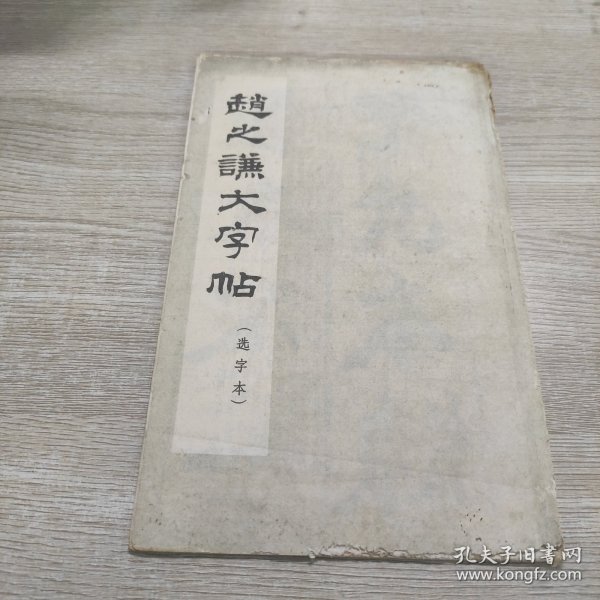 趙之謙大字帖
（选字本）
孔夫子旧书网
www.kongfz.com